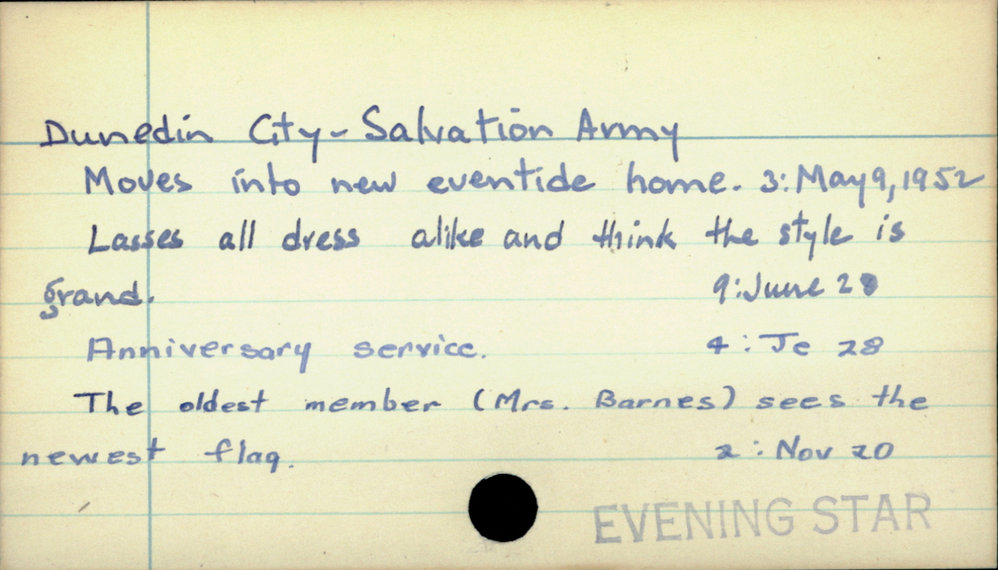 Dunedin City - Salvation Army
Moves into new eventide home. 3: May 9, 1952
Lasses all dress alike and think the style is
grand. 9: June 28
Anniversary service. 4: Je 28
The oldest member (Mrs. Barnes) sees the
newest flag. 2: Nov 20
EVENING STAR